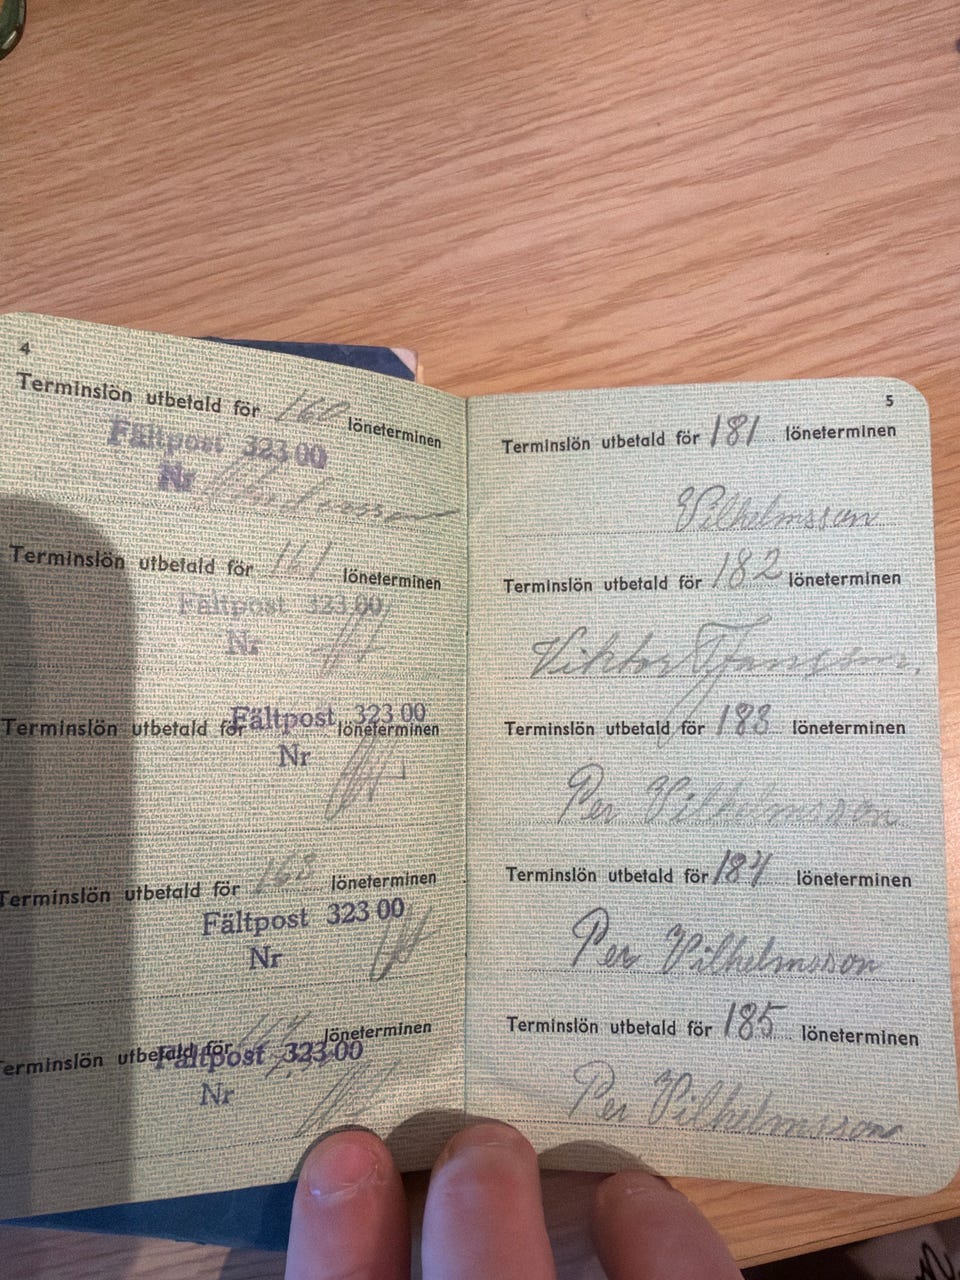 4
Terminslön utbetald för 160 löneterminen
Fältpost 323 00
Nr
Terminslön utbetald för 161 löneterminen
Fältpost 323 00
Nr
Terminslön utbetald för löneterminen
Fältpost 323 00
Nr
Terminslön utbetald för 163 löneterminen
Fältpost 323 00
Nr
Terminslön utbetald för 164 löneterminen
Fältpost 323 00
Nr
5
Terminslön utbetald för 181 löneterminen
Vilhelmsson
Terminslön utbetald för 182 löneterminen
Viktor Jansson.
Terminslön utbetald för 183 löneterminen
Per Vilhelmsson
Terminslön utbetald för 184 löneterminen
Per Vilhelmsson
Terminslön utbetald för 185 löneterminen
Per Vilhelmsson